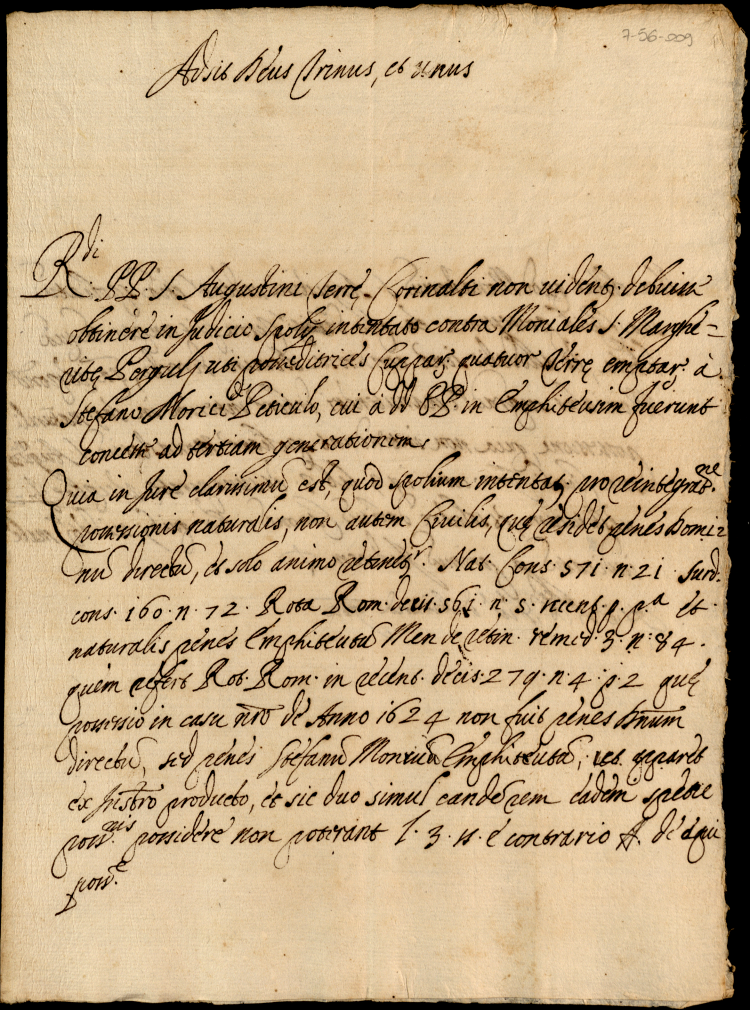 7-56-009
Adsit Deus Trinus, et unus
R.di PP. S. Augustini Terrę Corinalti non uident.r debuisse
obtinere in Judicio Spolij intentato contra Moniales S. Marghe=
ritę Pergulę uti posseditrices Cuppar. quatuor Terrę emptar. à
Stefano Morici Peticulo, cui à DD PP. in Emphiteusim fuerunt
concesse ad tertiam generationem.
Quia in Jure clarissimũ est, quod spolium intentat. pro reintegrat.ne
possessionis naturalis, non autem Ciuilis, quę residet penes Domi=
nũ directũ, et solo animo retinet.r. Nat. Cons. 571. n. 21. Surd.
cons. 160. n. 72. Rota Rom. decis. 561. n. 5. recent. p. p.a et
naturalis penes Emphiteutã Men. de retin. remed. 3. n. 84.
quem refert Rot. Rom. in recent. decis. 279. n. 4. p. 2 quę
possessio in casu nr̃o de Anno 1624 non fuit penes Dnũm
directũ, sed penes Stefanũ Moricũ Emphiteutã, ut apparet
ex Instro producto, et sic duo simul eandẽ rem eadem specie
poss.nis possidere non poterant l. 3. §. è contrario ff. de aqui
poss.e